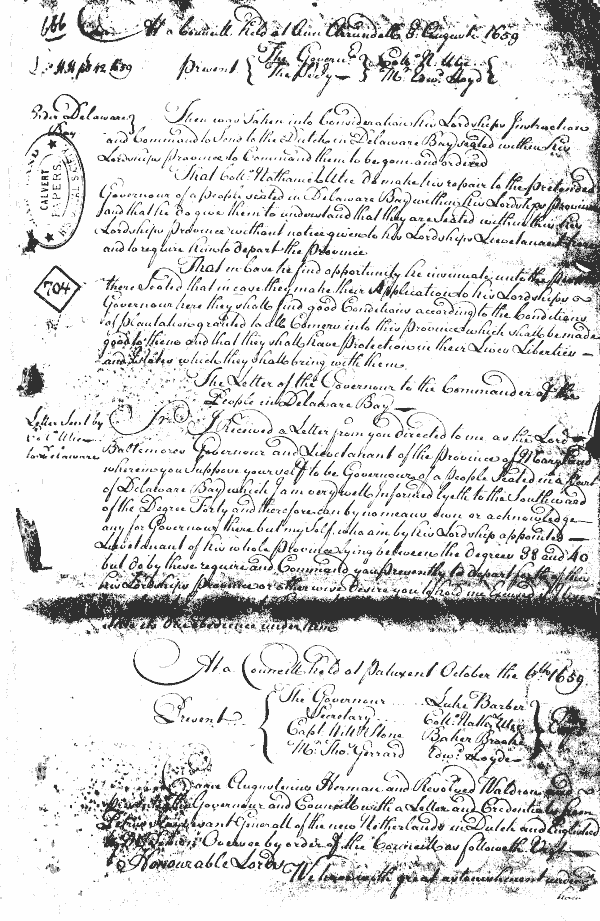 686
At a Councill held at Ann Arrundell 3 August 1659
present The Govern.r Coll: N. Utie
The Secr.y Mr. Edw. Lloyd
Then was taken into Consideration his Lordships Instruction
and Command to Send to the Dutch in Delaware Bay seated within his
Lordships province to Command them to be gon and ordered
That Coll: Nathaniel Utie do make his repair to the pretended
Governour of a people seated in Delaware Bay within his Lordships province
and that he do give them to understand that they are Seated within this his
Lordships province without notice given to his Lordships Lieuetenant here
and to require him to depart the Province
That in Case he find opportunity he insinuate unto the people
there Seated that in case they make their Application to his Lordships
Governour here they shall find good Conditions according to the Conditions
of plantation granted to all Comers into this Province which shall be made
good to them and that they shall have Protection in their Lives Liberties
and Estates which they shall bring with them.
CALVERT
PAPERS
704
The Letter of the Governour to the Commander of the
People in Delaware Bay
Letter Sent by
Coll Utie
to Delaware
Sir I received a Letter from you directed to me as the Lord
Baltemores Governour and Lieuetenant of the Province of Maryland
wherein you Suppose yourself to be Governour of a people Seated in a part
of Delaware Bay which I am very well Informed lyeth to the Southward
of the Degree Forty and therefore can by no means own or acknowledge
any for Governour there but my Self who am by his Lordship appointed
Lieuetenant of his whole Province lying between the degrees 38 and 40
but do by these require and Command you presently to depart forth of this
his Lordships Province or otherwise desire you to hold me Excused if
under him
At a Councill held at patuxent October the 6th 1659
Present The Governour Luke Barber
Secretary Coll: Nath: Utie
Capt Will Stone Baker Brooke
Mr. Tho: Gerrard Edw: Lloyd
Augustenus Herman and Resolved Waldron
the Governour and Councill with a Letter and Credentialls from
Generall of the new Netherlands in Dutch and Englished
by Mr. Overzee by order of the Councill as followeth Vizt.
Honourable Lords
We have with great astonishment under